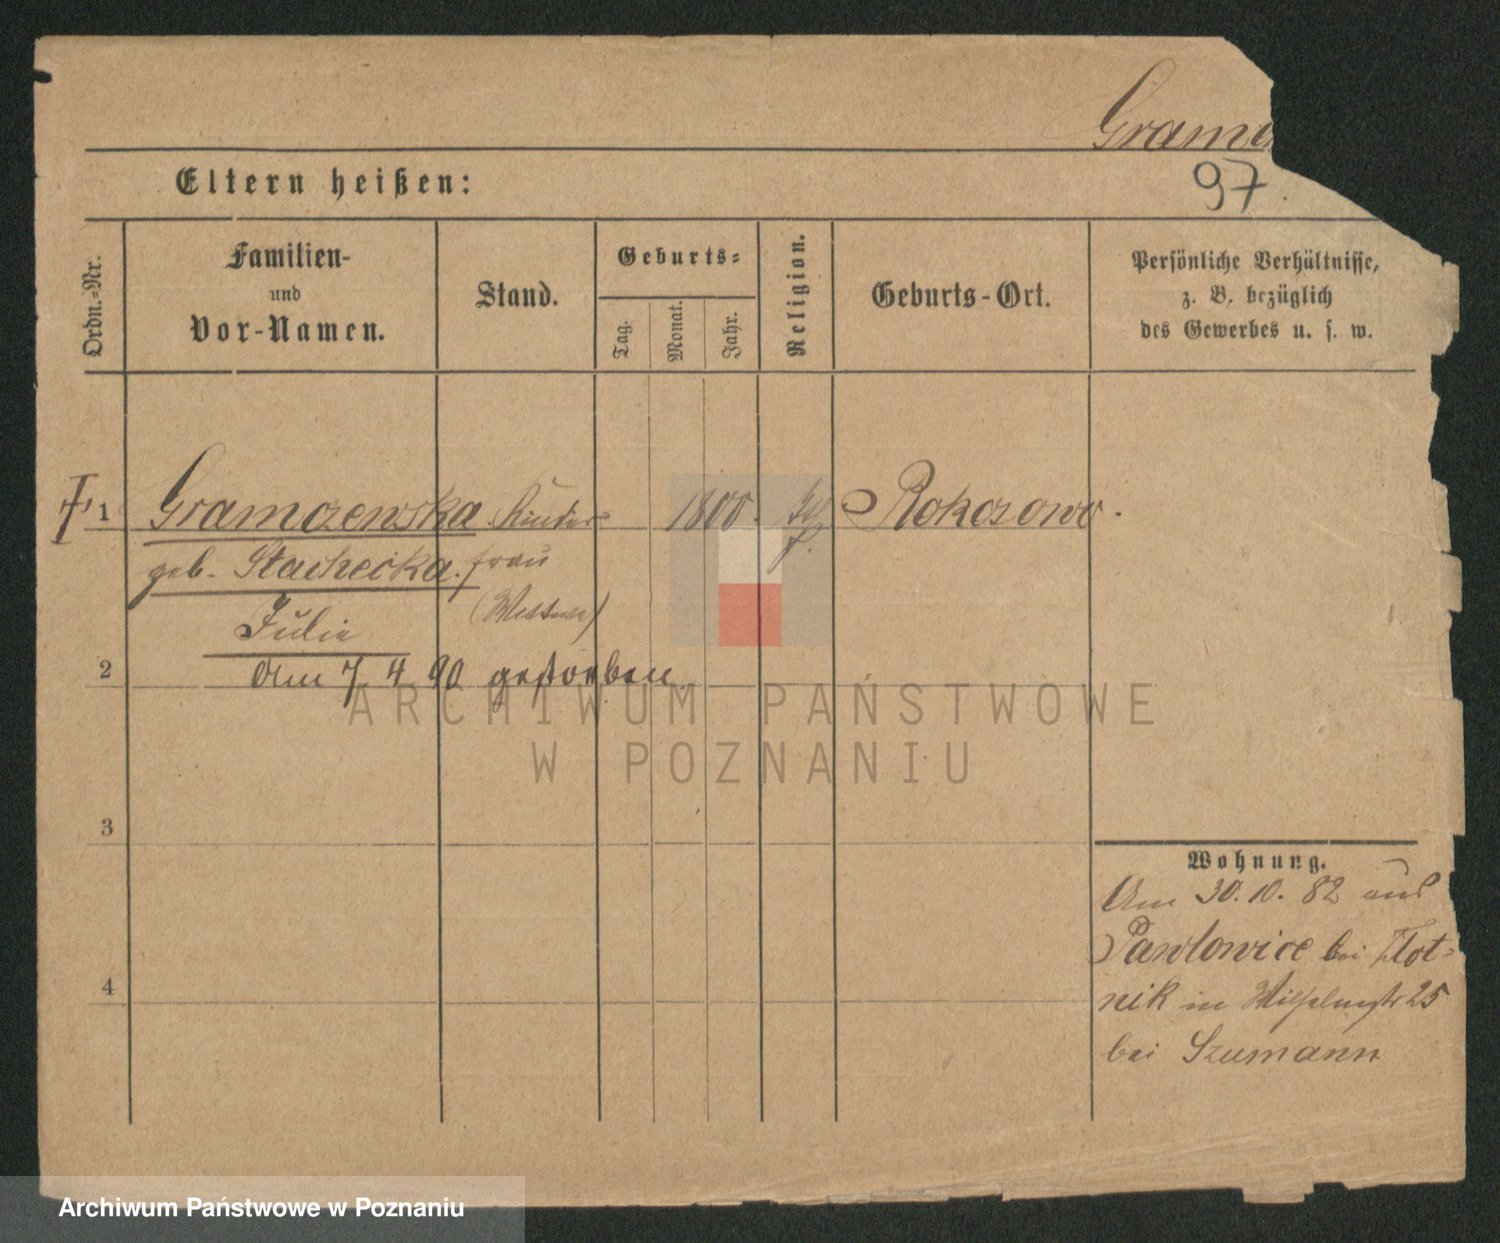 Gramcz
97
Eltern heißen:
Ordn.-Nr.
Familien-
und
Vor-Namen.
Stand.
Geburts-
Tag.
Monat.
Jahr.
Religion.
Geburts-Ort.
Persönliche Verhältnisse,
z. B. bezüglich
des Gewerbes u. s. w.
1 Gramczewska Kinder- 1800. Rokosowo.
geb. Stachecka. frau
Julie
2 Am 7 4 90 gestorben
3
4
Wohnung.
Am 30. 10. 82 aus
Pawlowice bei Zlot-
nik in Wilhelmstr 25
bei Szumann
ARCHIWUM PAŃSTWOWE
W POZNANIU
Archiwum Państwowe w Poznaniu